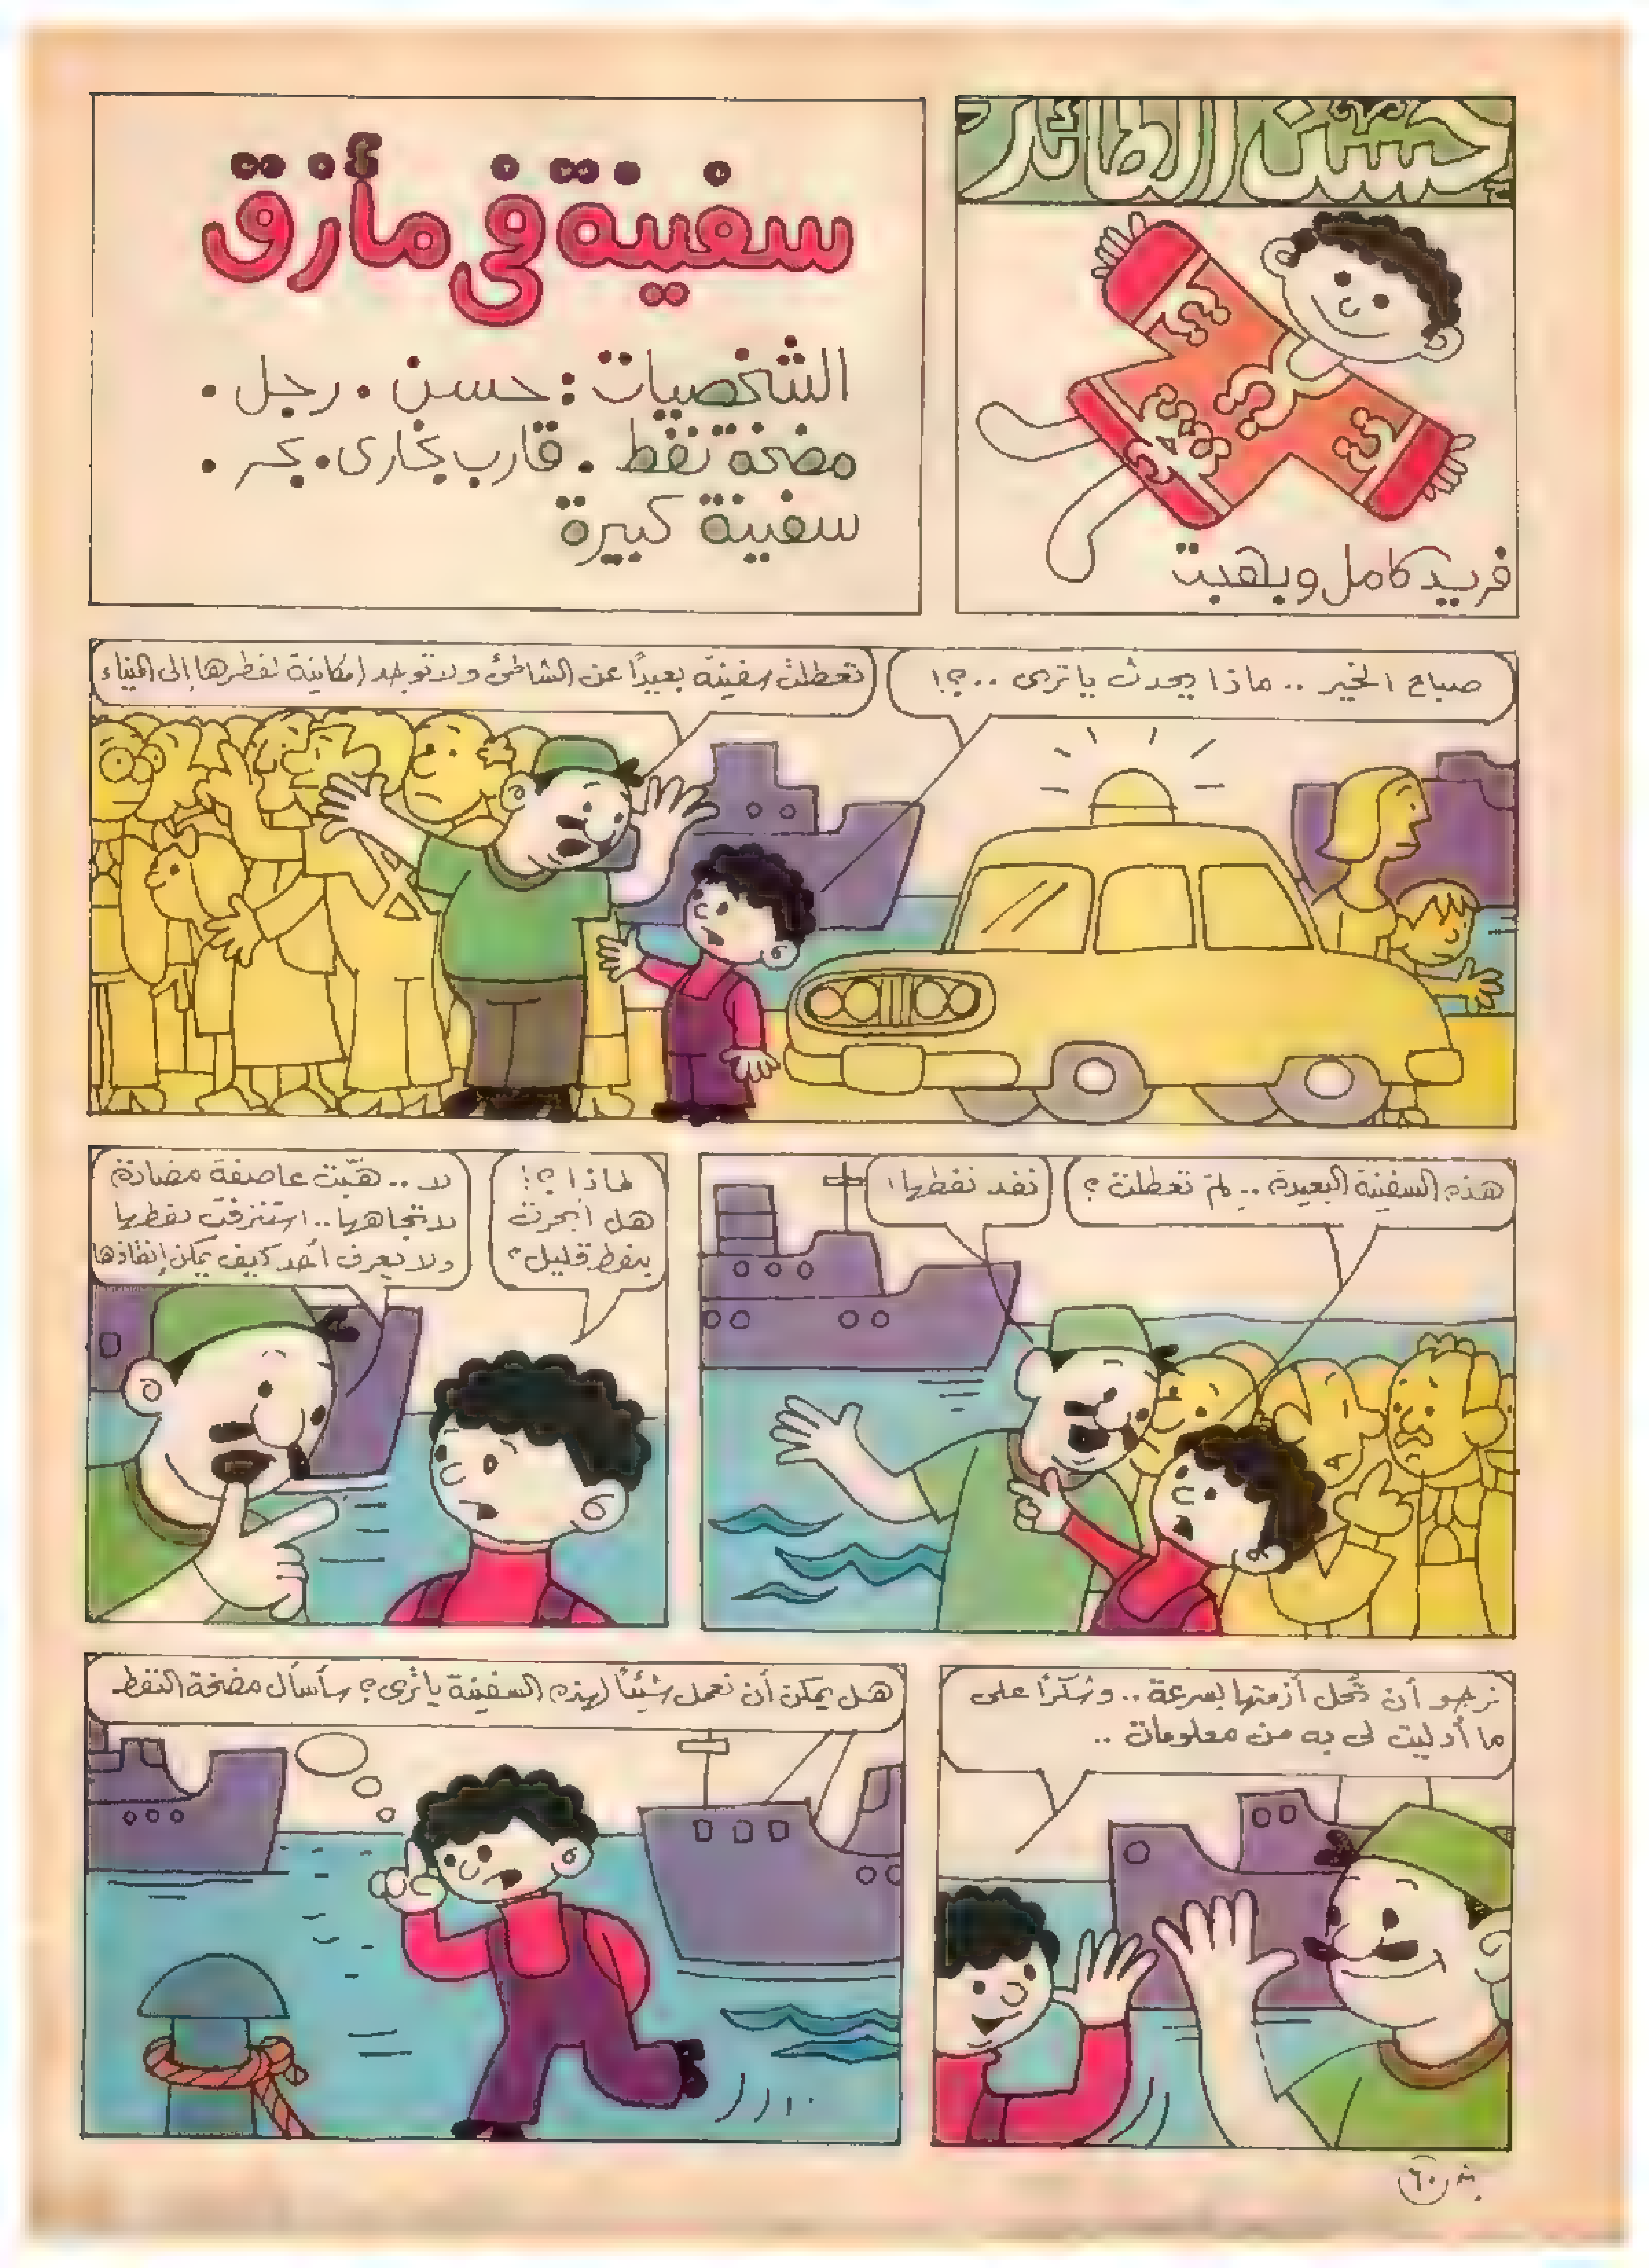 حسن الطائر
فريد كامل وبهجت
سفينة فى مأزق
الشخصيات : حسن . رجل .
مضخة نفط . قارب بخارى . بحر .
سفينة كبيرة
صباح الخير .. ماذا يحدث يا ترى ..؟!
تعطلت سفينة بعيدًا عن الشاطئ ولا توجد إمكانية لقطرها إلى الميناء
هذه السفينة البعيدة .. لِمَ تعطلت ؟
نفد نفطها !
لماذا ؟!
هل أبحرت
بنفط قليل ؟
لا .. هبّت عاصفة مضادة
لاتجاهها .. استنزفت نفطها
ولا يعرف أحد كيف يمكن إنقاذها
نرجو أن تُحل أزمتها بسرعة .. وشكرًا على
ما أدليت لى به من معلومات ..
هل يمكن أن نعمل شيئًا لهذه السفينة يا تُرى ؟ سأسأل مضخة النفط
٦٠